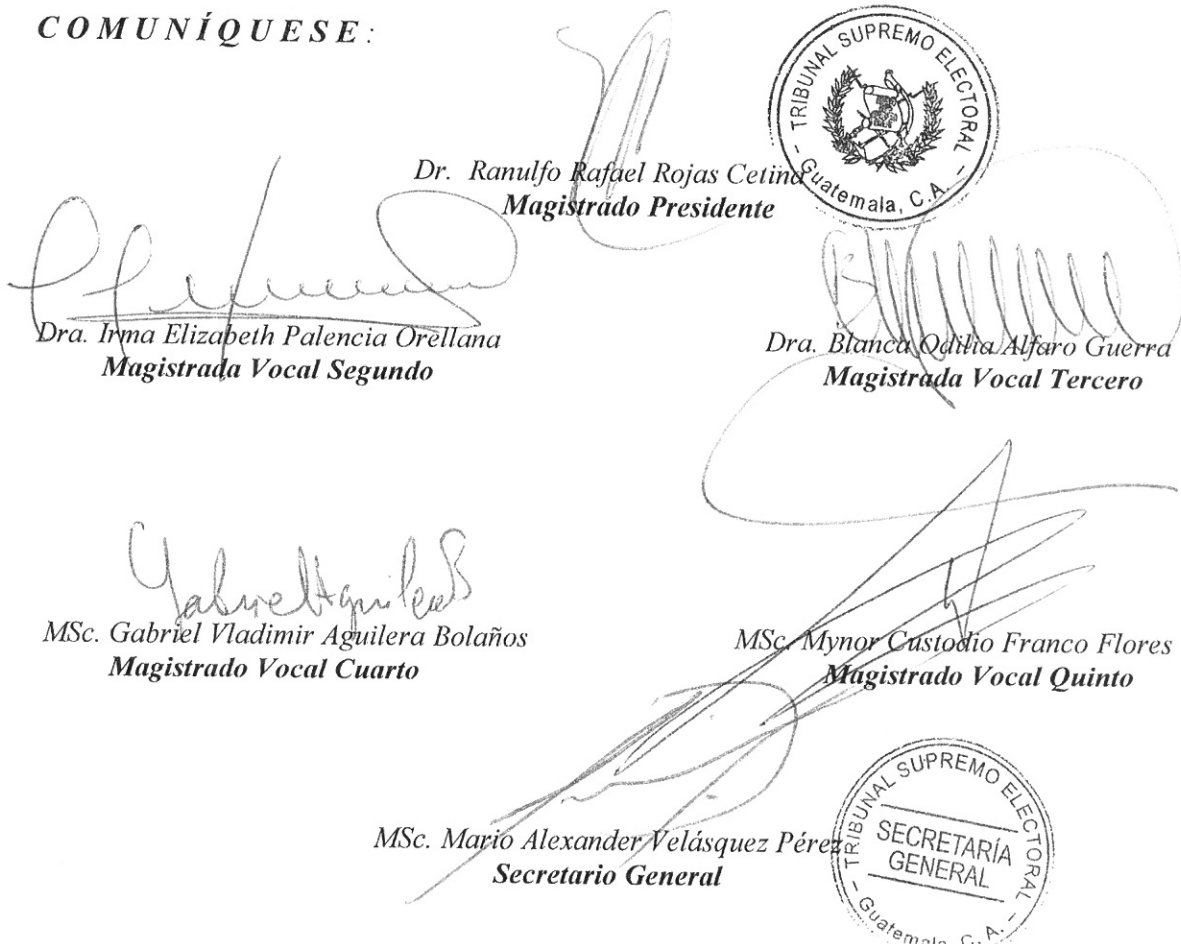 COMUNÍQUESE:
TRIBUNAL SUPREMO ELECTORAL
- Guatemala, C.A. -
Dr. Ranulfo Rafael Rojas Cetina
Magistrado Presidente
Dra. Irma Elizabeth Palencia Orellana
Magistrada Vocal Segundo
Dra. Blanca Odilia Alfaro Guerra
Magistrada Vocal Tercero
Gabriel Aguilera B
MSc. Gabriel Vladimir Aguilera Bolaños
Magistrado Vocal Cuarto
MSc. Mynor Custodio Franco Flores
Magistrado Vocal Quinto
MSc. Mario Alexander Velásquez Pérez
Secretario General
TRIBUNAL SUPREMO ELECTORAL
SECRETARÍA
GENERAL
- Guatemala, C.A. -